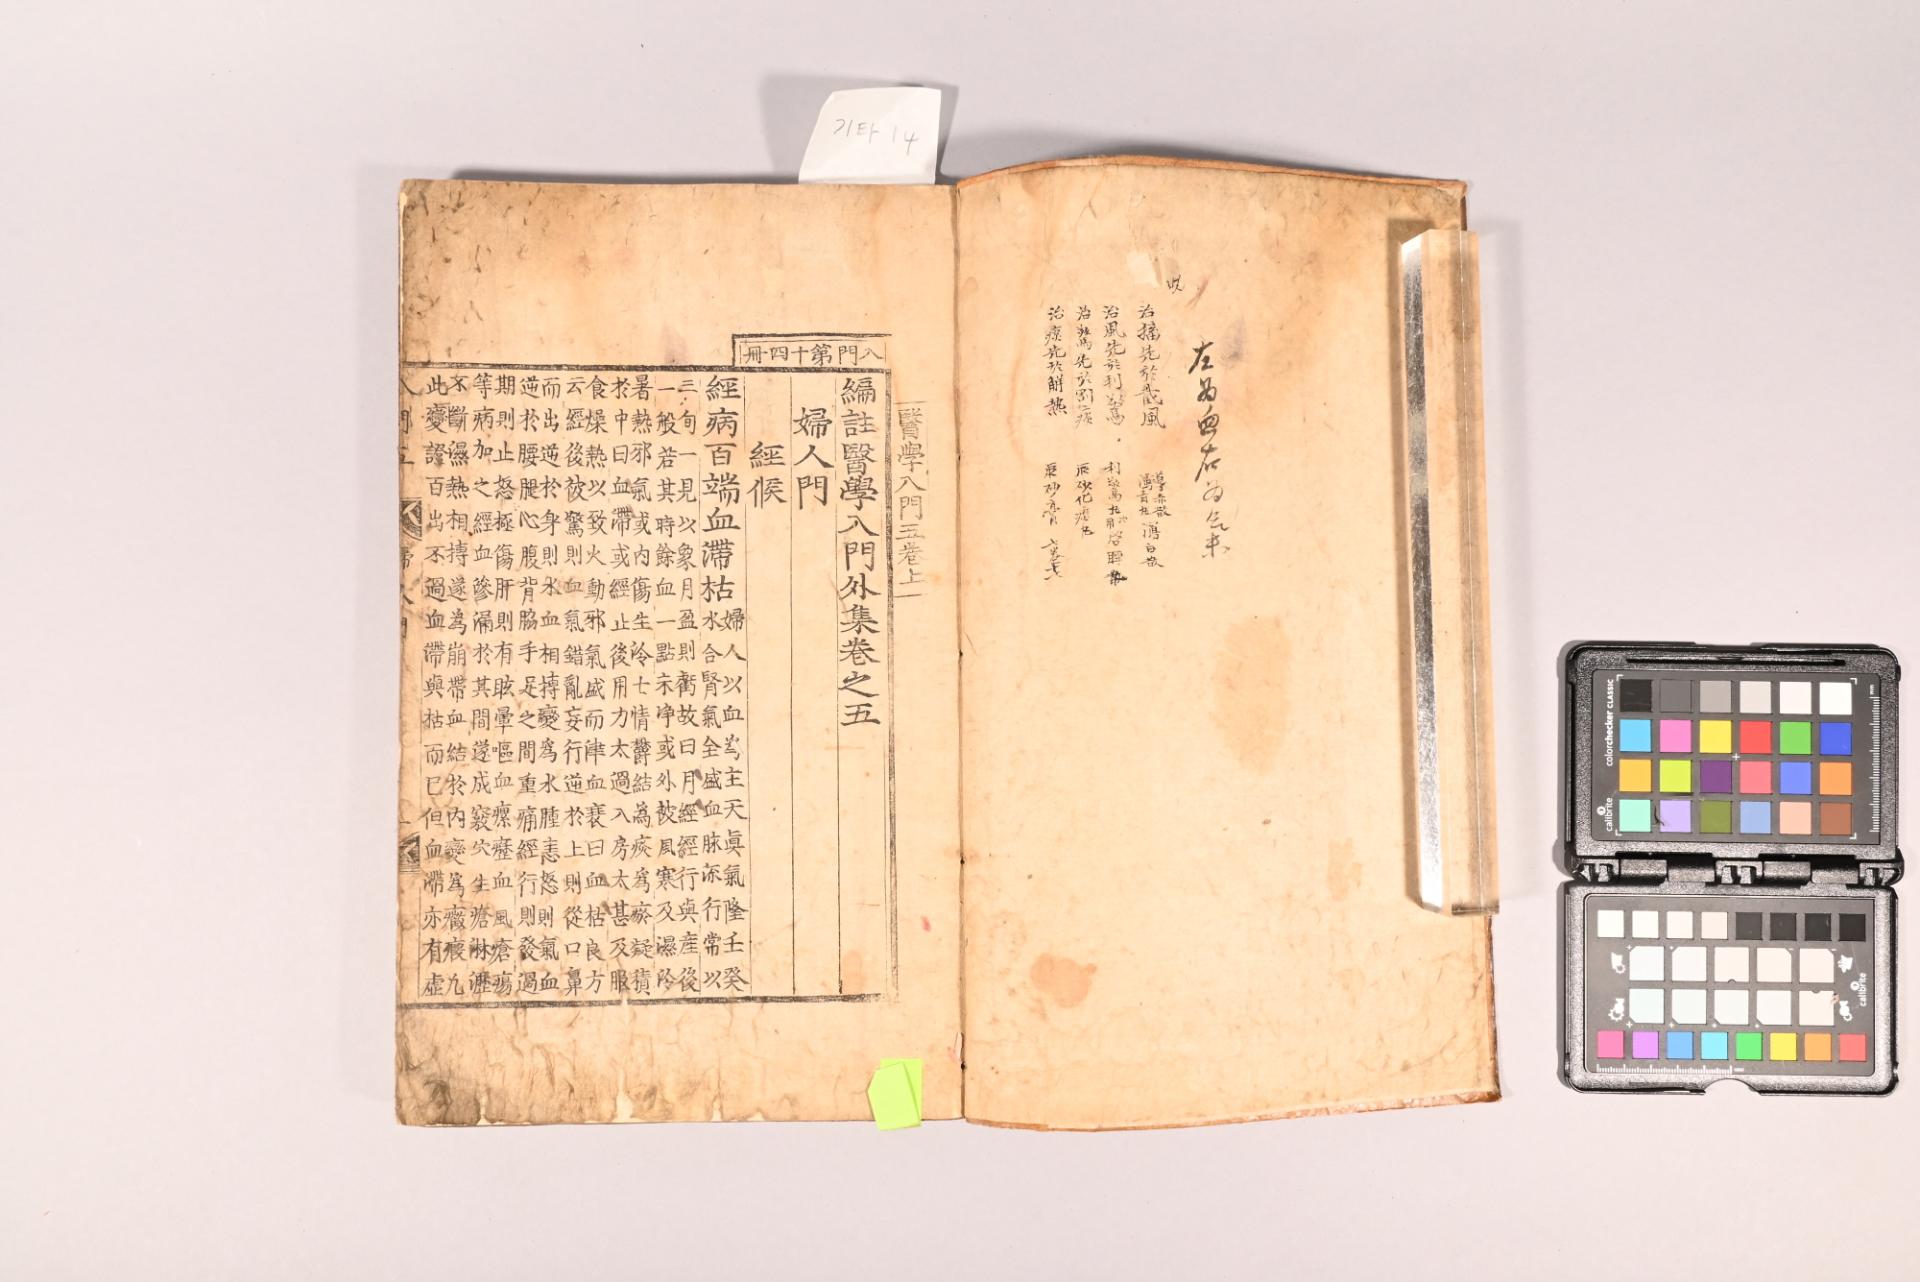 기타 14
左为血右为气末
治搐先於截風
治風先於利驚
治驚先於豁痰
治痰先於解熱
醫學入門五卷上
入門第十四冊
編註醫學入門外集卷之五
婦人門
經候
經病百端血滯枯
婦人以血爲主天眞氣降壬癸
水合腎氣全盛血脉流行常以
三旬一見以象月盈則虧故曰月經經行與產後
一般若其時餘血一點未淨或外被風寒及濕冷
暑熱邪氣或内傷生冷七情鬱結為痰爲瘀凝積
於中曰血滯或經止後用力太過入房太甚及服
食燥熱以致火動邪氣盛而津血衰曰血枯良方
云經後被驚則血氣錯亂妄行逆於上則從口鼻
而出逆於身則水血相搏變爲水腫恚怒則氣血
逆於腰腿心腹背脇手足之間重痛經行則發過
期則止怒極傷肝則有眩暈嘔血瘰癧血風瘡瘍
等病加之經血滲漏於其間遂成竅穴生瘡淋瀝
不斷濕熱相搏遂為崩帶血結於内變爲癥瘕九
此變證百出不過血滯與枯而已但血滯亦有虛
calibrite
colorchecker CLASSIC
calibrite